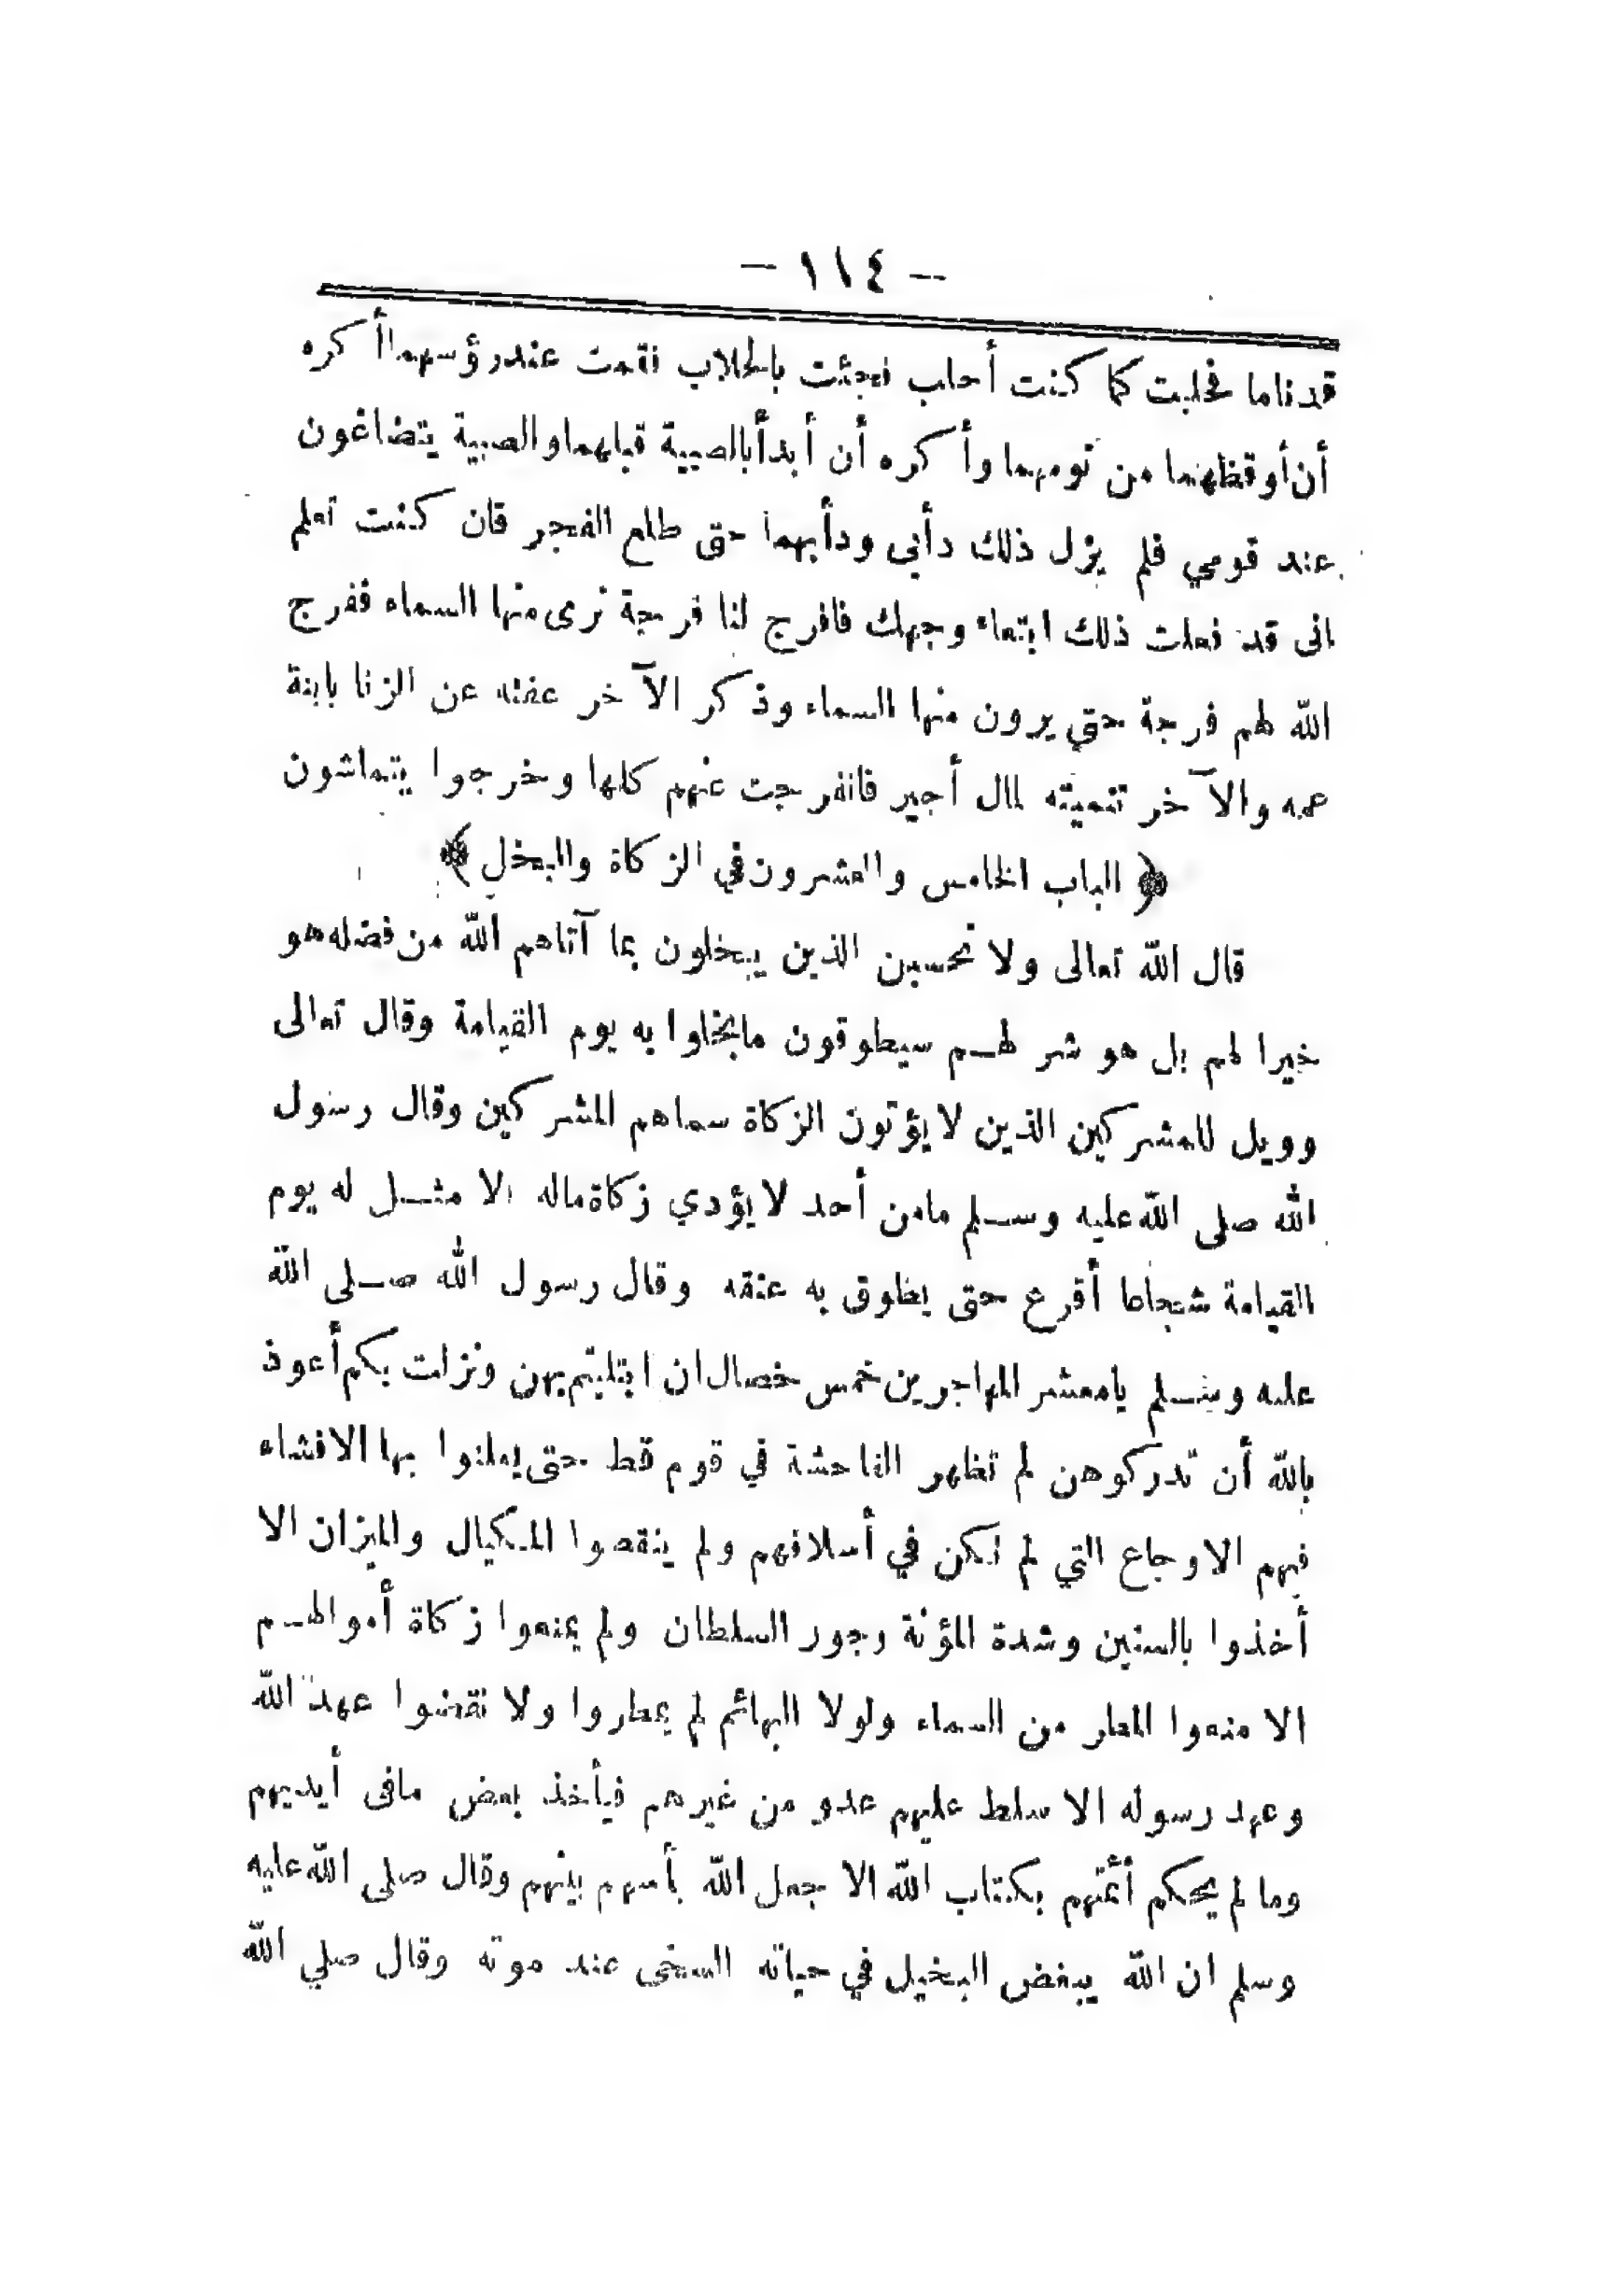 — ١١٤ —
قد ناما فحلبت كما كنت أحلب فجئت بالحلاب فقمت عند رؤسهما أكره
أن أوقظهما من نومهما وأكره أن أبدأ بالصبية قبلهما والصبية يتضاغون
عند قومي فلم يزل ذلك دأبي ودأبهما حتى طلع الفجر فان كنت تعلم
انى قد فعلت ذلك ابتغاء وجهك فافرج لنا فرجة نرى منها السماء ففرج
الله لهم فرجة حتي يرون منها السماء وذكر الآخر عفته عن الزنا بابنة
عمه والآخر تنميته لمال أجير فانفرجت عنهم كلها وخرجوا يتماشون
﴿ الباب الخامس والعشرون في الزكاة والبخل ﴾
قال الله تعالى ولا تحسبن الذين يبخلون بما آتاهم الله من فضله هو
خيرا لهم بل هو شر لهم سيطوقون ما بخلوا به يوم القيامة وقال تعالى
وويل للمشركين الذين لا يؤتون الزكاة سماهم المشركين وقال رسول
الله صلى الله عليه وسلم ما من أحد لا يؤدي زكاة ماله الا مثل له يوم
القيامة شجاعا أقرع حتى يطوق به عنقه وقال رسول الله صلى الله
عليه وسلم يا معشر المهاجرين خمس خصال ان ابتليتم بهن ونزلت بكم أعوذ
بالله أن تدركوهن لم تظهر الفاحشة في قوم قط حتى يعلنوا بها الا فشاء
فيهم الاوجاع التي لم تكن في أسلافهم ولم ينقصوا المكيال والميزان الا
أخذوا بالسنين وشدة المؤنة وجور السلطان ولم يمنعوا زكاة أموالهم
الا منعوا المطر من السماء ولولا البهائم لم يمطروا ولا نقضوا عهد الله
وعهد رسوله الا سلط عليهم عدو من غيرهم فيأخذ بعض مافى أيديهم
وما لم يحكم أئمتهم بكتاب الله الا جعل الله بأسهم بينهم وقال صلى الله عليه
وسلم ان الله يبغض البخيل في حياته السخى عند موته وقال صلي الله